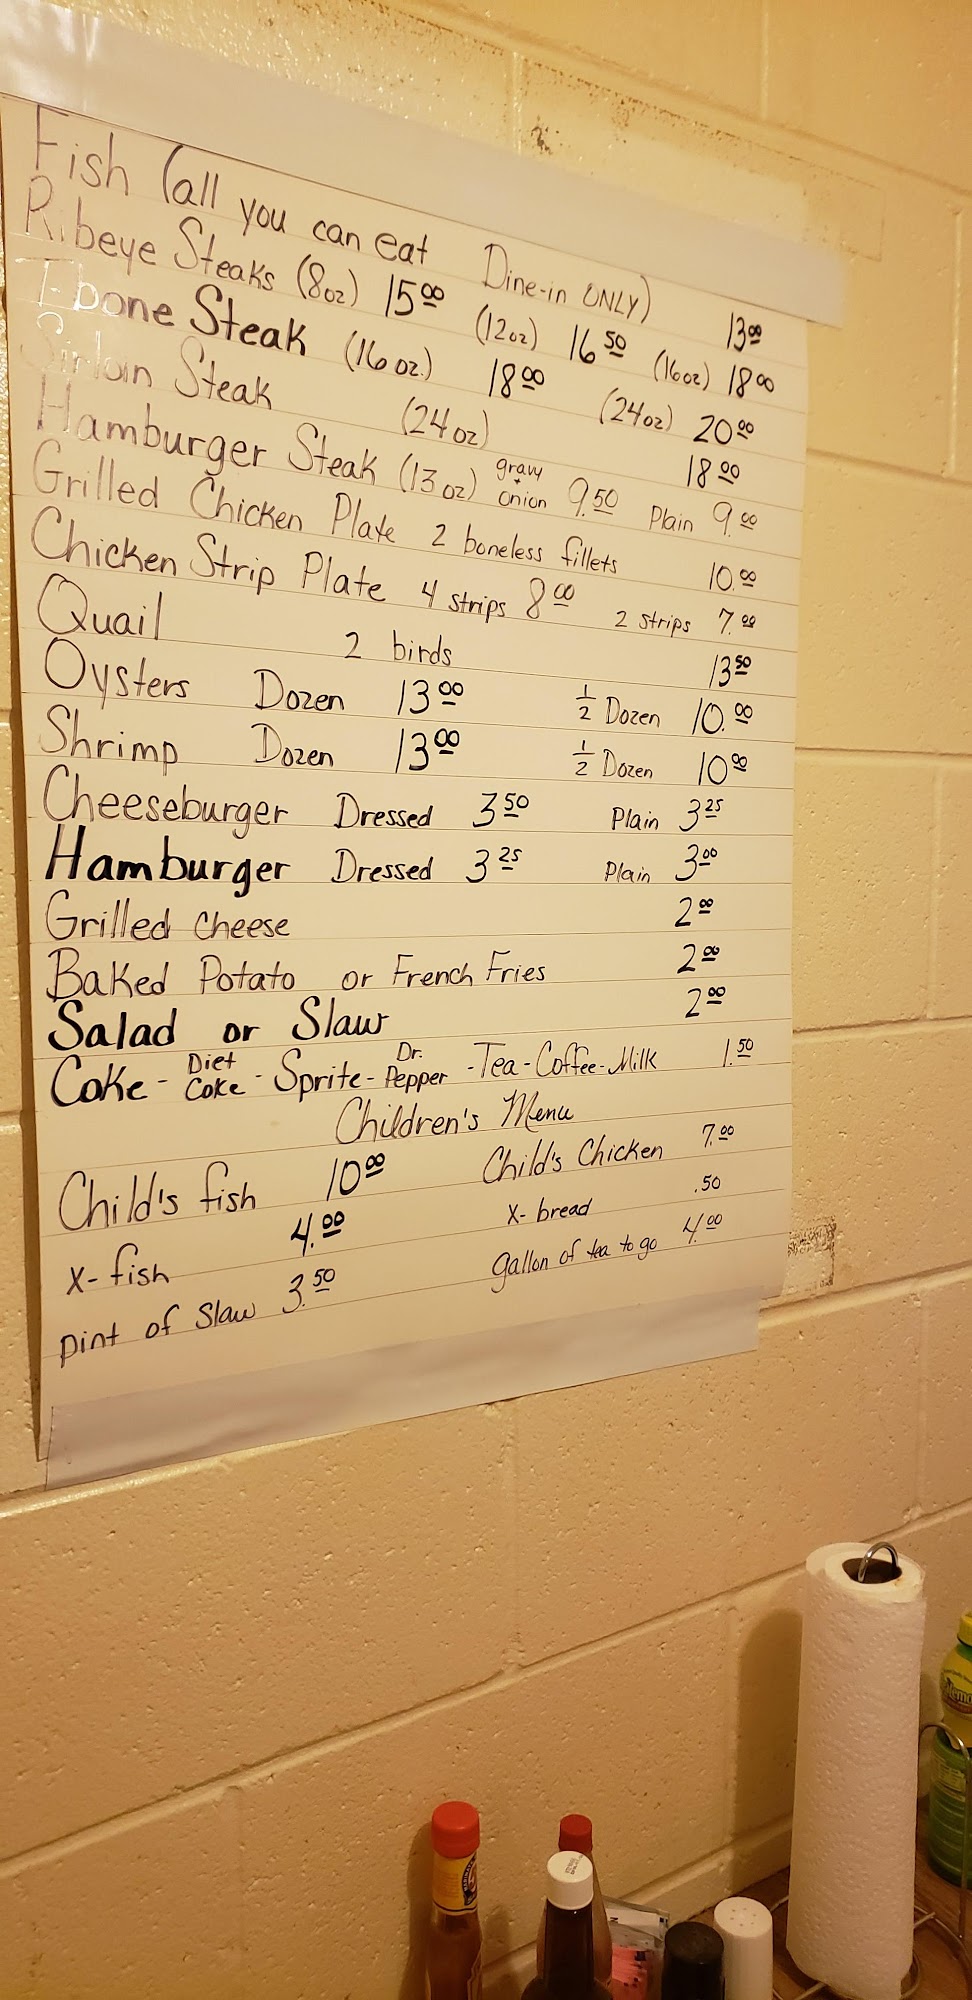 Fish (all you can eat Dine-in ONLY) 13.00
Ribeye Steaks (8oz) 15.00 (12oz) 16.50 (16oz) 18.00
T-bone Steak (16 oz.) 18.00 (24oz) 20.00
Sirloin Steak (24oz) 18.00
Hamburger Steak (13oz) gravy + onion 9.50 Plain 9.00
Grilled Chicken Plate 2 boneless fillets 10.00
Chicken Strip Plate 4 strips 8.00 2 strips 7.00
Quail 2 birds 13.50
Oysters Dozen 13.00 1/2 Dozen 10.00
Shrimp Dozen 13.00 1/2 Dozen 10.00
Cheeseburger Dressed 3.50 Plain 3.25
Hamburger Dressed 3.25 Plain 3.00
Grilled Cheese 2.00
Baked Potato or French Fries 2.00
Salad or Slaw 2.00
Coke - Diet Coke - Sprite - Dr. Pepper - Tea - Coffee - Milk 1.50
Children's Menu
Child's fish 10.00 Child's Chicken 7.00
x-fish 4.00 x-bread .50
pint of Slaw 3.50 gallon of tea to go 4.00